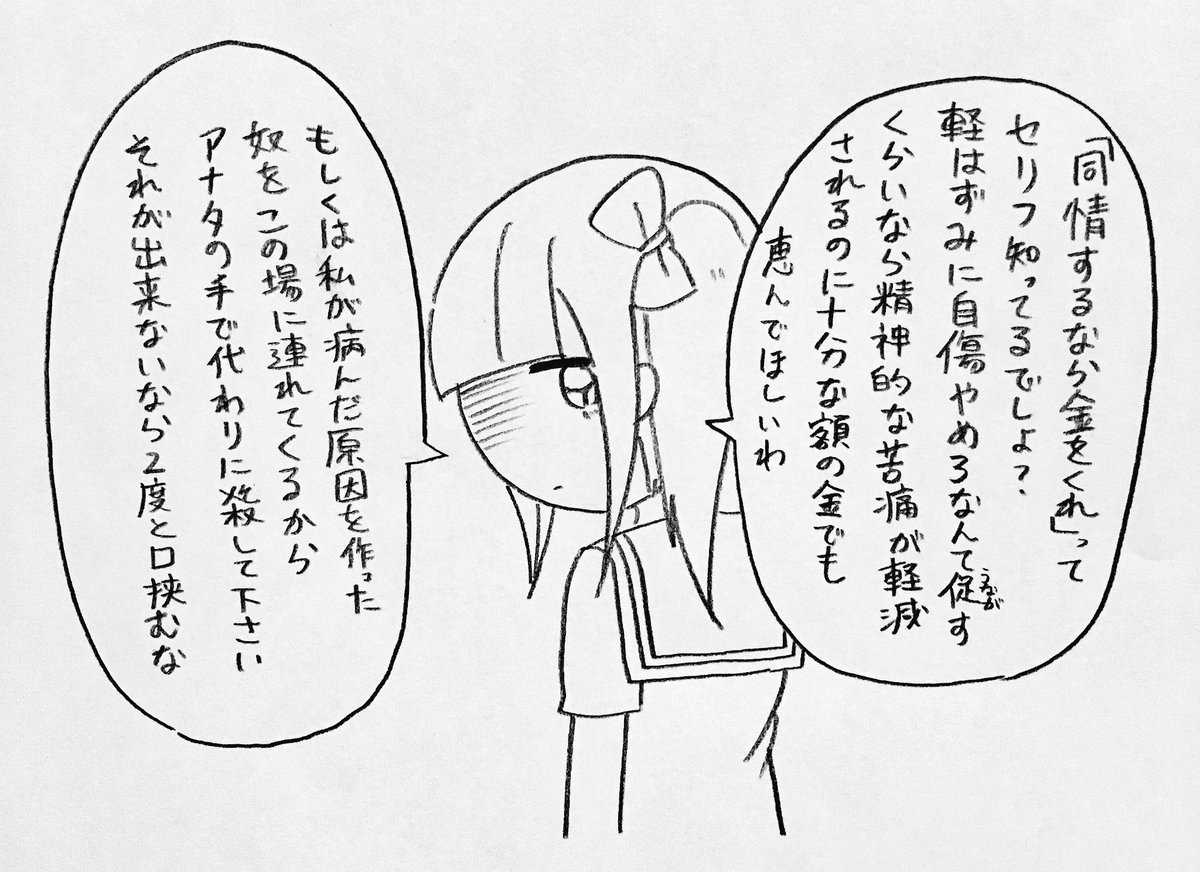 「同情するなら金をくれ」って
セリフ知ってるでしょ？
軽はずみに自傷やめろなんて促す
うなが
くらいなら精神的な苦痛が軽減
されるのに十分な額の金でも
恵んでほしいわ
もしくは私が病んだ原因を作った
奴をこの場に連れてくるから
アナタの手で代わりに殺して下さい
それが出来ないなら2度と口挟むな